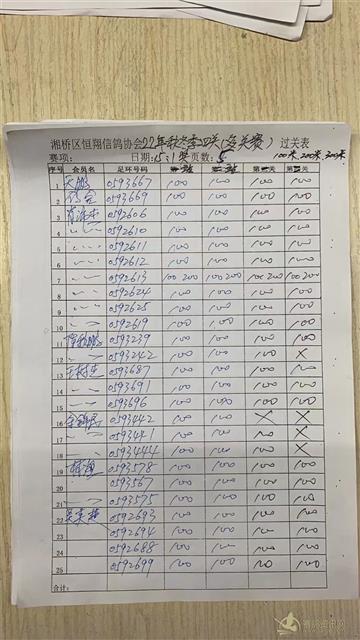 湘桥区恒翔信鸽协会22年秋冬季四关(多关赛)过关表
赛项: 日期: 页数: 5 100米,200米,300米
序号 会员名 足环号码 关 关 第三关 第四关
1 天鹏 0593667 100 100 100 100
2 0593669 100 100 100 100
3 0592606 100 100 100 100
4 0592610 100 100 100 100
5 0592611 100 100 100 100
6 0592612 100 100 100 100
7 0592613 100 200 100 200 100 200 100 200
8 0592624 100 100 100 100
9 0592625 100 100 100 100
10 0592619 100 100 100 100
11 0593239 100 100 100 100
12 0593242 100 100 100 X
13 0593687 100 100 100 100
14 0593691 100 100 100 100
15 0593696 100 100 100 100
16 0593442 100 100 X X
17 0593441 100 100 100 X
18 0593444 100 100 100 X
19 0593578 100 100 100 100
20 0593567 100 100 100 100
21 0593575 100 100 100 100
22 0592693 100 100 100 100
23 0592694 100 100 100 100
24 0592688 100 100 100 100
25 0592699 100 100 100 100
合计: